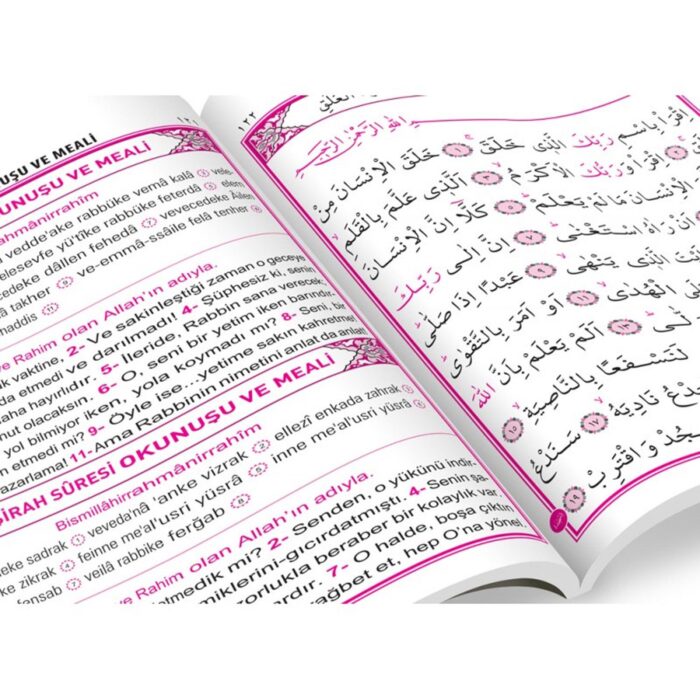 ١٢١
UŞU VE MEALİ
UNUŞU VE MEALİ
hmânirrahîm
vedde'ake rabbüke vemâ kalâ ٣ vele-
elesevfe yü'tîke rabbüke feterdâ ٥ elem
ecedeke dâllen fehedâ ٧ vevecedeke Âilen
â takher ٩ ve-emmâ-ssâile felâ tenher ١٠
haddis ١١
ve Rahim olan Allah'ın adıyla.
k vaktine, 2- Ve sakinleştiği zaman o geceye
da etmedi ve darılmadı! 4- Şüphesiz ki, senin
aha hayırlıdır. 5- İleride, Rabbin sana verecek,
nut olacaksın. 6- O, seni bir yetim iken barındır-
yol bilmiyor iken, yola koymadı mı? 8- Seni, bir
n etmedi mi? 9- Öyle ise...yetime sakın kahretme!
azarlama! 11- Ama Rabbinin nimetini anlat da anlat!
ŞİRAH SÛRESİ OKUNUŞU VE MEALİ
Bismillâhirrahmânirrahîm
eke sadrak ١ veveda'nâ 'anke vizrak ٢ ellezî enkada zahrak ٣
eke zikrak ٤ feinne me'al'usri yüsrâ ٥ inne me'al'usri yüsrâ ٦
fensab ٧ veilâ rabbike ferğab ٨
ve Rahim olan Allah'ın adıyla.
etmedik mi? 2- Senden, o yükünü indir-
miklerini-gıcırdatmıştı. 4- Senin şa-
zorlukla beraber bir kolaylık var.
ardır. 7- O halde, boşa çıktın
ağbet et, hep O'na yönel
١٢٢
العلق
الله الرحمن الرحيم
اِقْرَأْ بِاسْمِ رَبِّكَ الَّذٖى خَلَقَ ١ خَلَقَ الْاِنْسَانَ مِنْ
اِقْرَأْ وَرَبُّكَ الْاَكْرَمُ ٣ اَلَّذٖى عَلَّمَ بِالْقَلَمِ
الْاِنْسَانَ مَا لَمْ يَعْلَمْ ٥ كَلَّا اِنَّ الْاِنْسَانَ
اَنْ رَاٰهُ اسْتَغْنٰى ٧ اِنَّ اِلٰى رَبِّكَ
الَّذٖى يَنْهٰى ٩ عَبْدًا اِذَا صَلّٰى
الْهُدٰى ١١ اَوْ اَمَرَ بِالتَّقْوٰى
١٣ اَلَمْ يَعْلَمْ بِاَنَّ اللّٰهَ
لَنَسْفَعًا بِالنَّاصِيَةِ ١٥
نَادِيَهُ ١٧ سَنَدْعُ
وَاقْتَرِبْ ١٩